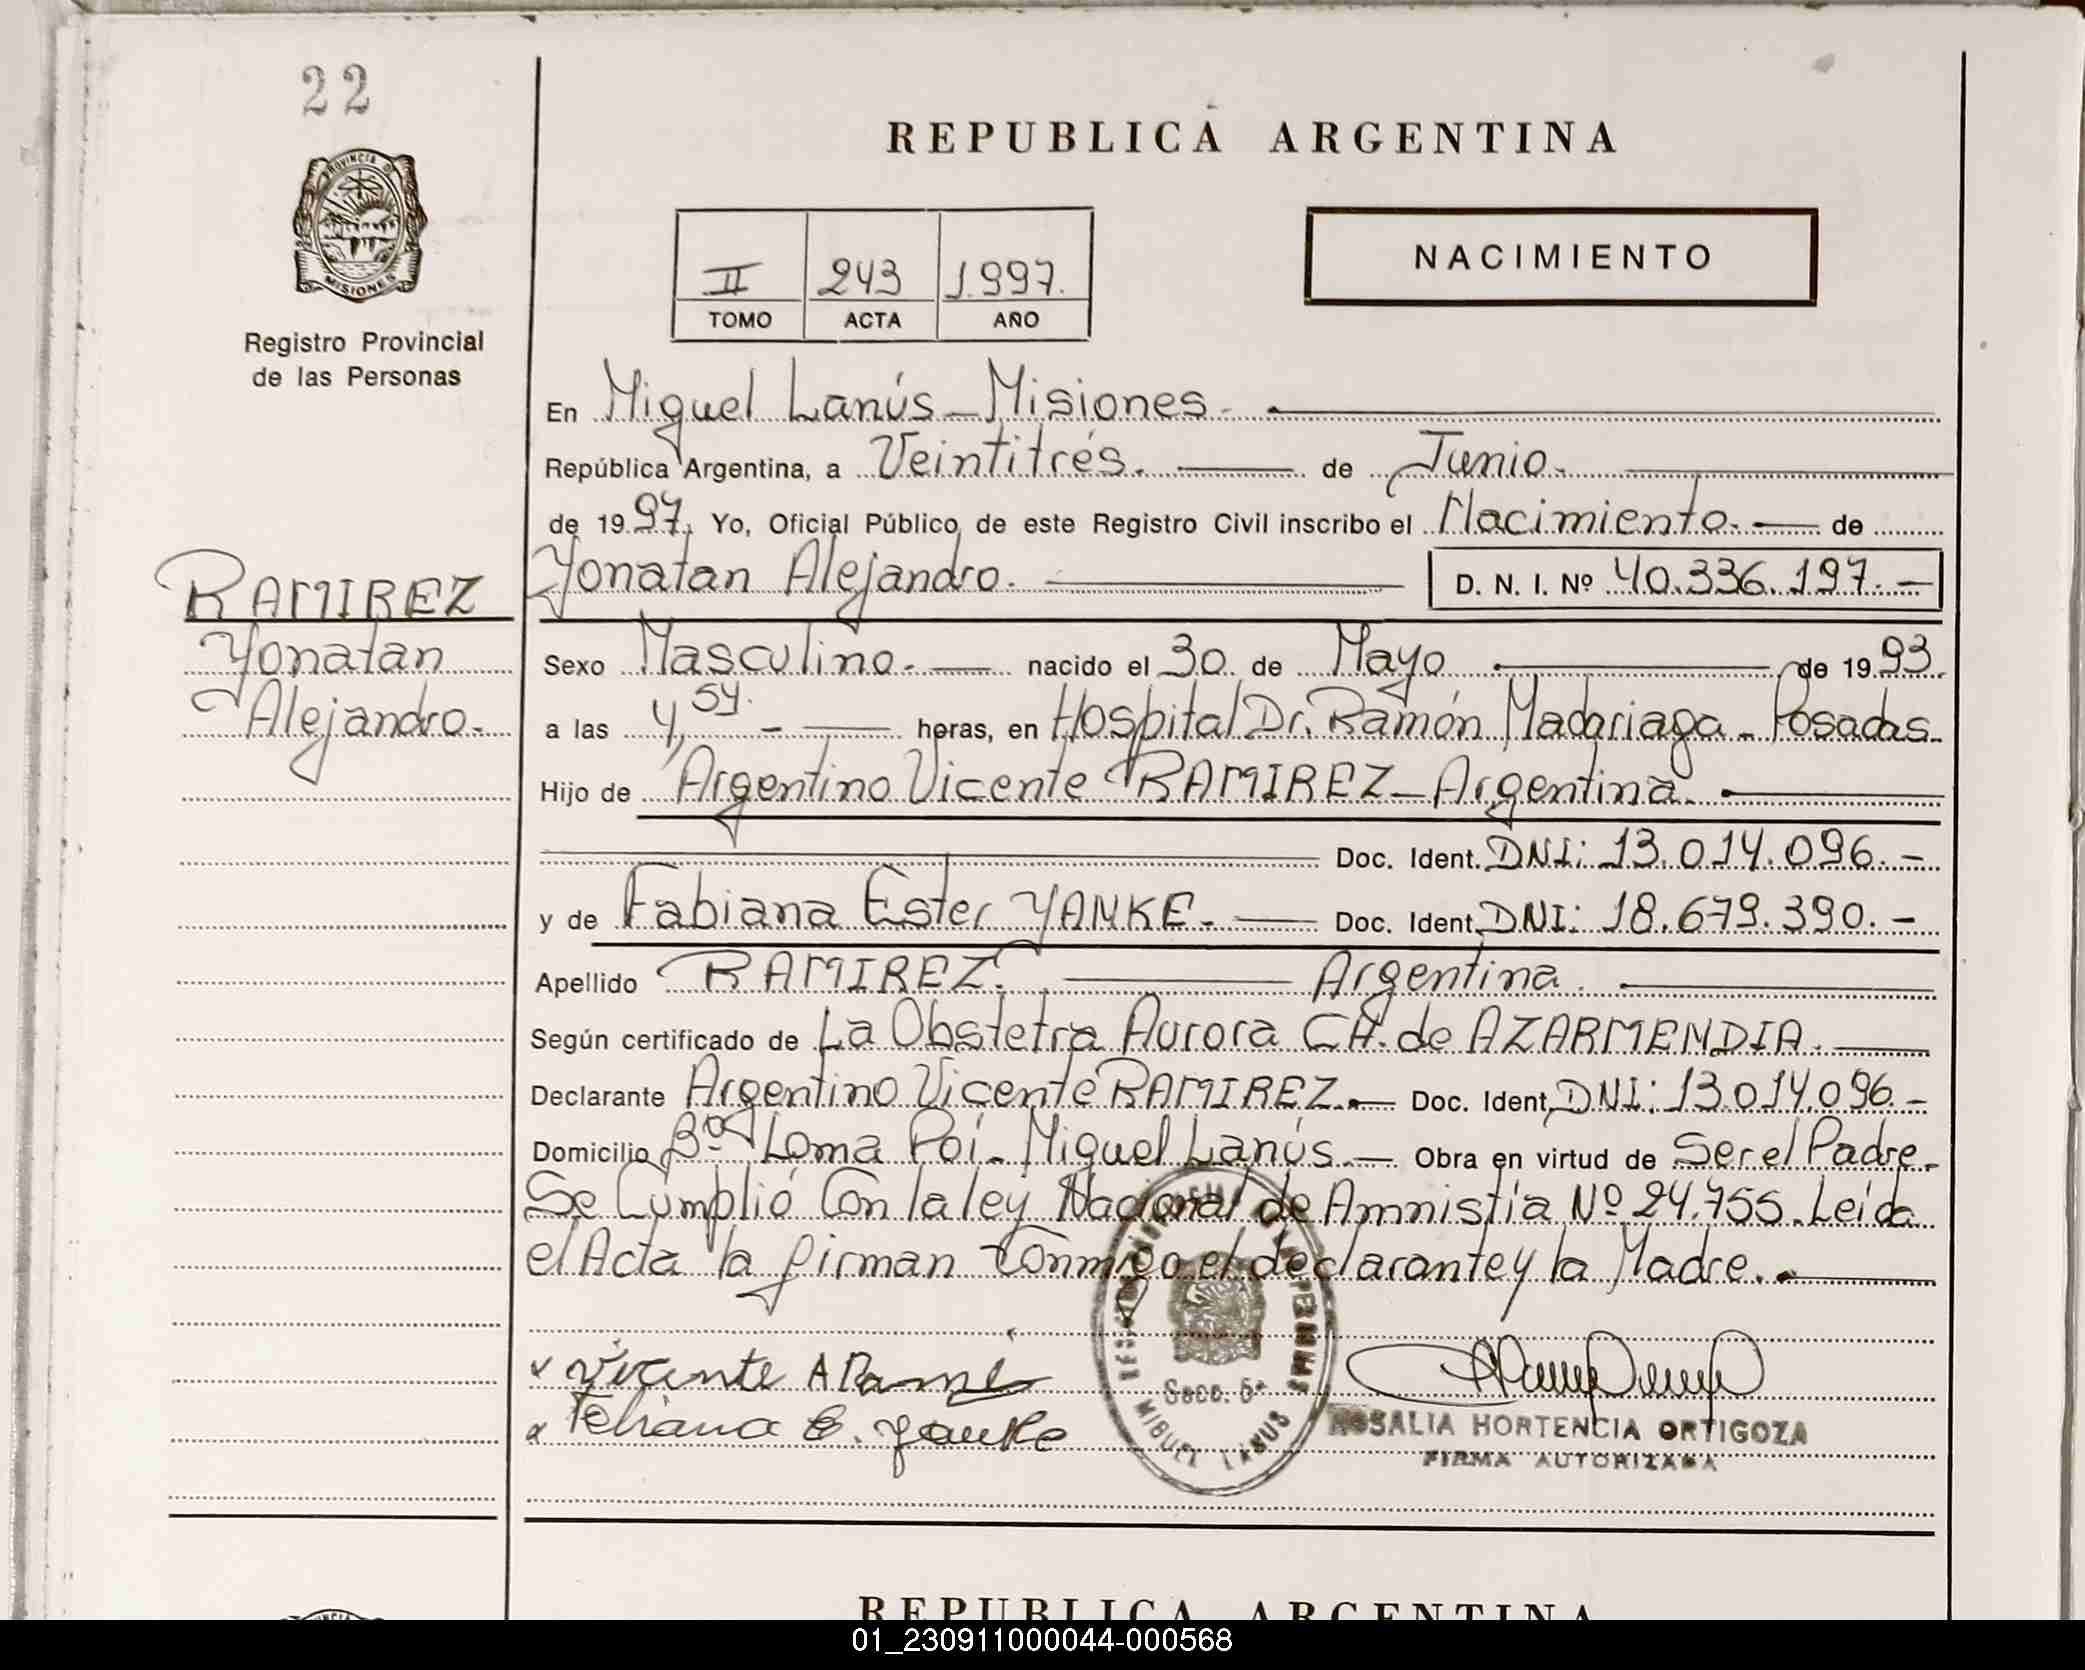 22
PROVINCIA DE
MISIONES
Registro Provincial
de las Personas
RAMIREZ
Yonatan
Alejandro.
REPUBLICA ARGENTINA
II 243 1.997.
TOMO ACTA AÑO
NACIMIENTO
En Miguel Lanús - Misiones.
República Argentina, a Veintitrés. de Junio.
de 1997. Yo, Oficial Público de este Registro Civil inscribo el Nacimiento. de
Yonatan Alejandro. D. N. I. Nº 40.336.197.-
Sexo Masculino. nacido el 30 de Mayo de 1993.
a las 4,54.- horas, en Hospital Dr. Ramón Madariaga - Posadas.
Hijo de Argentino Vicente RAMIREZ - Argentina.
Doc. Ident. DNI: 13.014.096.-
y de Fabiana Ester YANKE. Doc. Ident. DNI: 18.679.390.-
Apellido RAMIREZ. Argentina.
Según certificado de La Obstetra Aurora CH. de AZARMENDIA.
Declarante Argentino Vicente RAMIREZ. Doc. Ident. DNI: 13.014.096.-
Domicilio Bº Loma Poí - Miguel Lanús. Obra en virtud de Ser el Padre.
Se Cumplió Con la ley Nacional de Amnistía Nº 24.755. Leída
el Acta la firman Conmigo el declarante y la Madre.
Vicente A Rami
Fabiana E. Yanke
Secc. 5ª
MIGUEL LANUS
ROSALIA HORTENCIA ORTIGOZA
FIRMA AUTORIZADA
REPUBLICA ARGENTINA
01_230911000044-000568